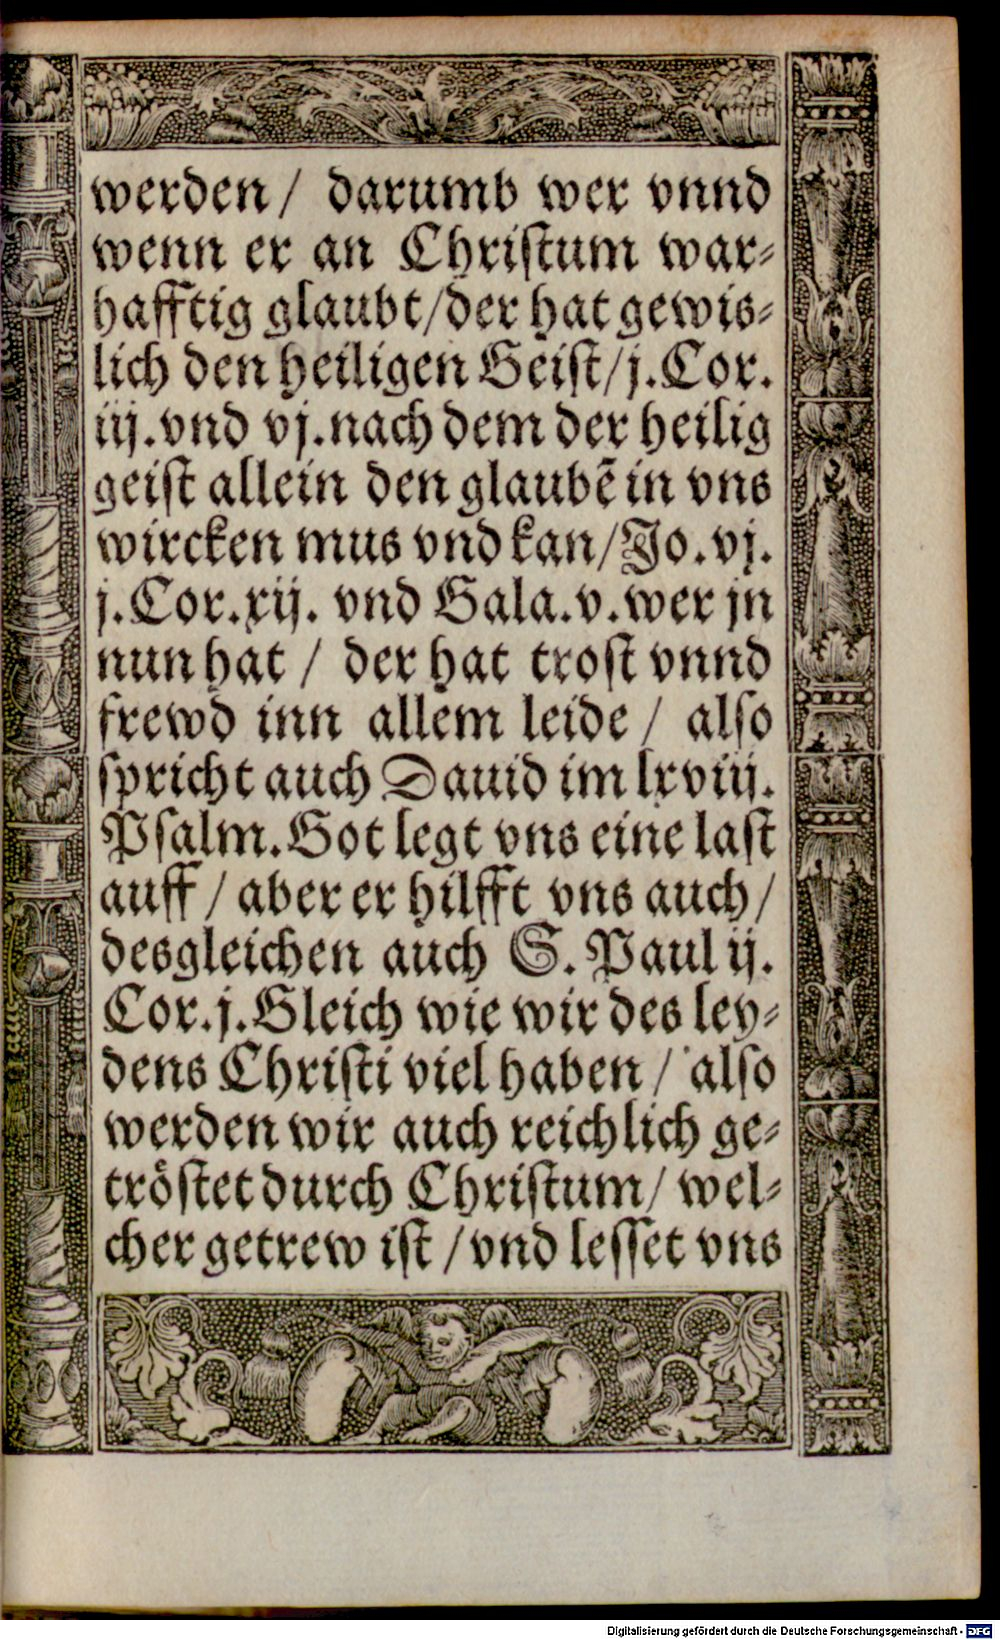 werden / darumb wer vnnd
wenn er an Christum war⸗
hafftig glaubt/der hat gewis⸗
lich den heiligen Geist/j.Cor.
iij.vnd vj.nach dem der heilig
geist allein den glaubē in vns
wircken mus vnd kan/Jo.vj.
j.Cor.xij. vnd Gala.v.wer jn
nun hat / der hat trost vnnd
frewd inn allem leide / also
spricht auch Dauid im lxviij.
Psalm.Got legt vns eine last
auff / aber er hilfft vns auch /
desgleichen auch S. Paul ij.
Cor.j.Gleich wie wir des ley⸗
dens Christi viel haben / also
werden wir auch reichlich ge⸗
tröstet durch Christum / wel⸗
cher getrew ist / vnd lesset vns
Digitalisierung gefördert durch die Deutsche Forschungsgemeinschaft - DFG